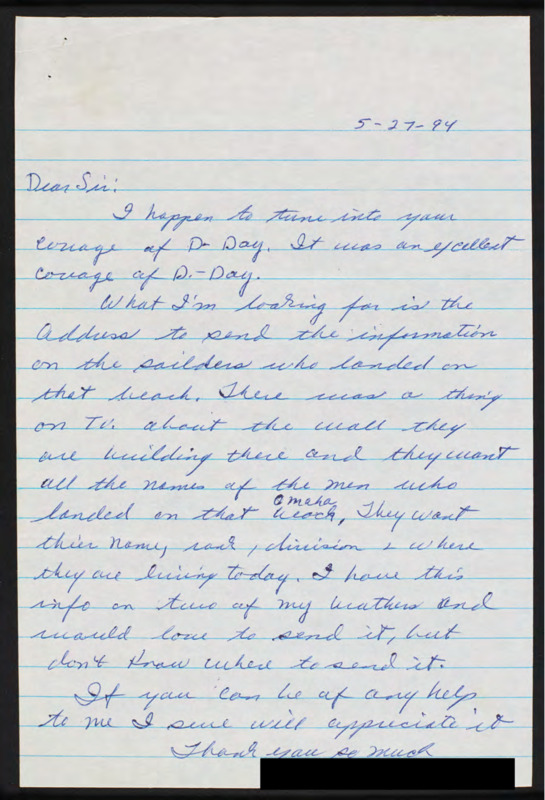 5-27-94
Dear Sir:
I happen to tune into your
covage of D-Day. It was an excellent
covage of D.-Day.
What I'm looking for is the
Address to send the information
on the sailders who landed on
that beach. There was a thing
on Tv. about the wall they
are building there and they want
all the names of the men who
landed on that Omaha beach, They want
thier name, rank, division & where
they are living today. I have this
info on two of my brothers and
would love to send it, but
don't know where to send it.
If you can be of any help
to me I sure will appreciate it
Thank you so much